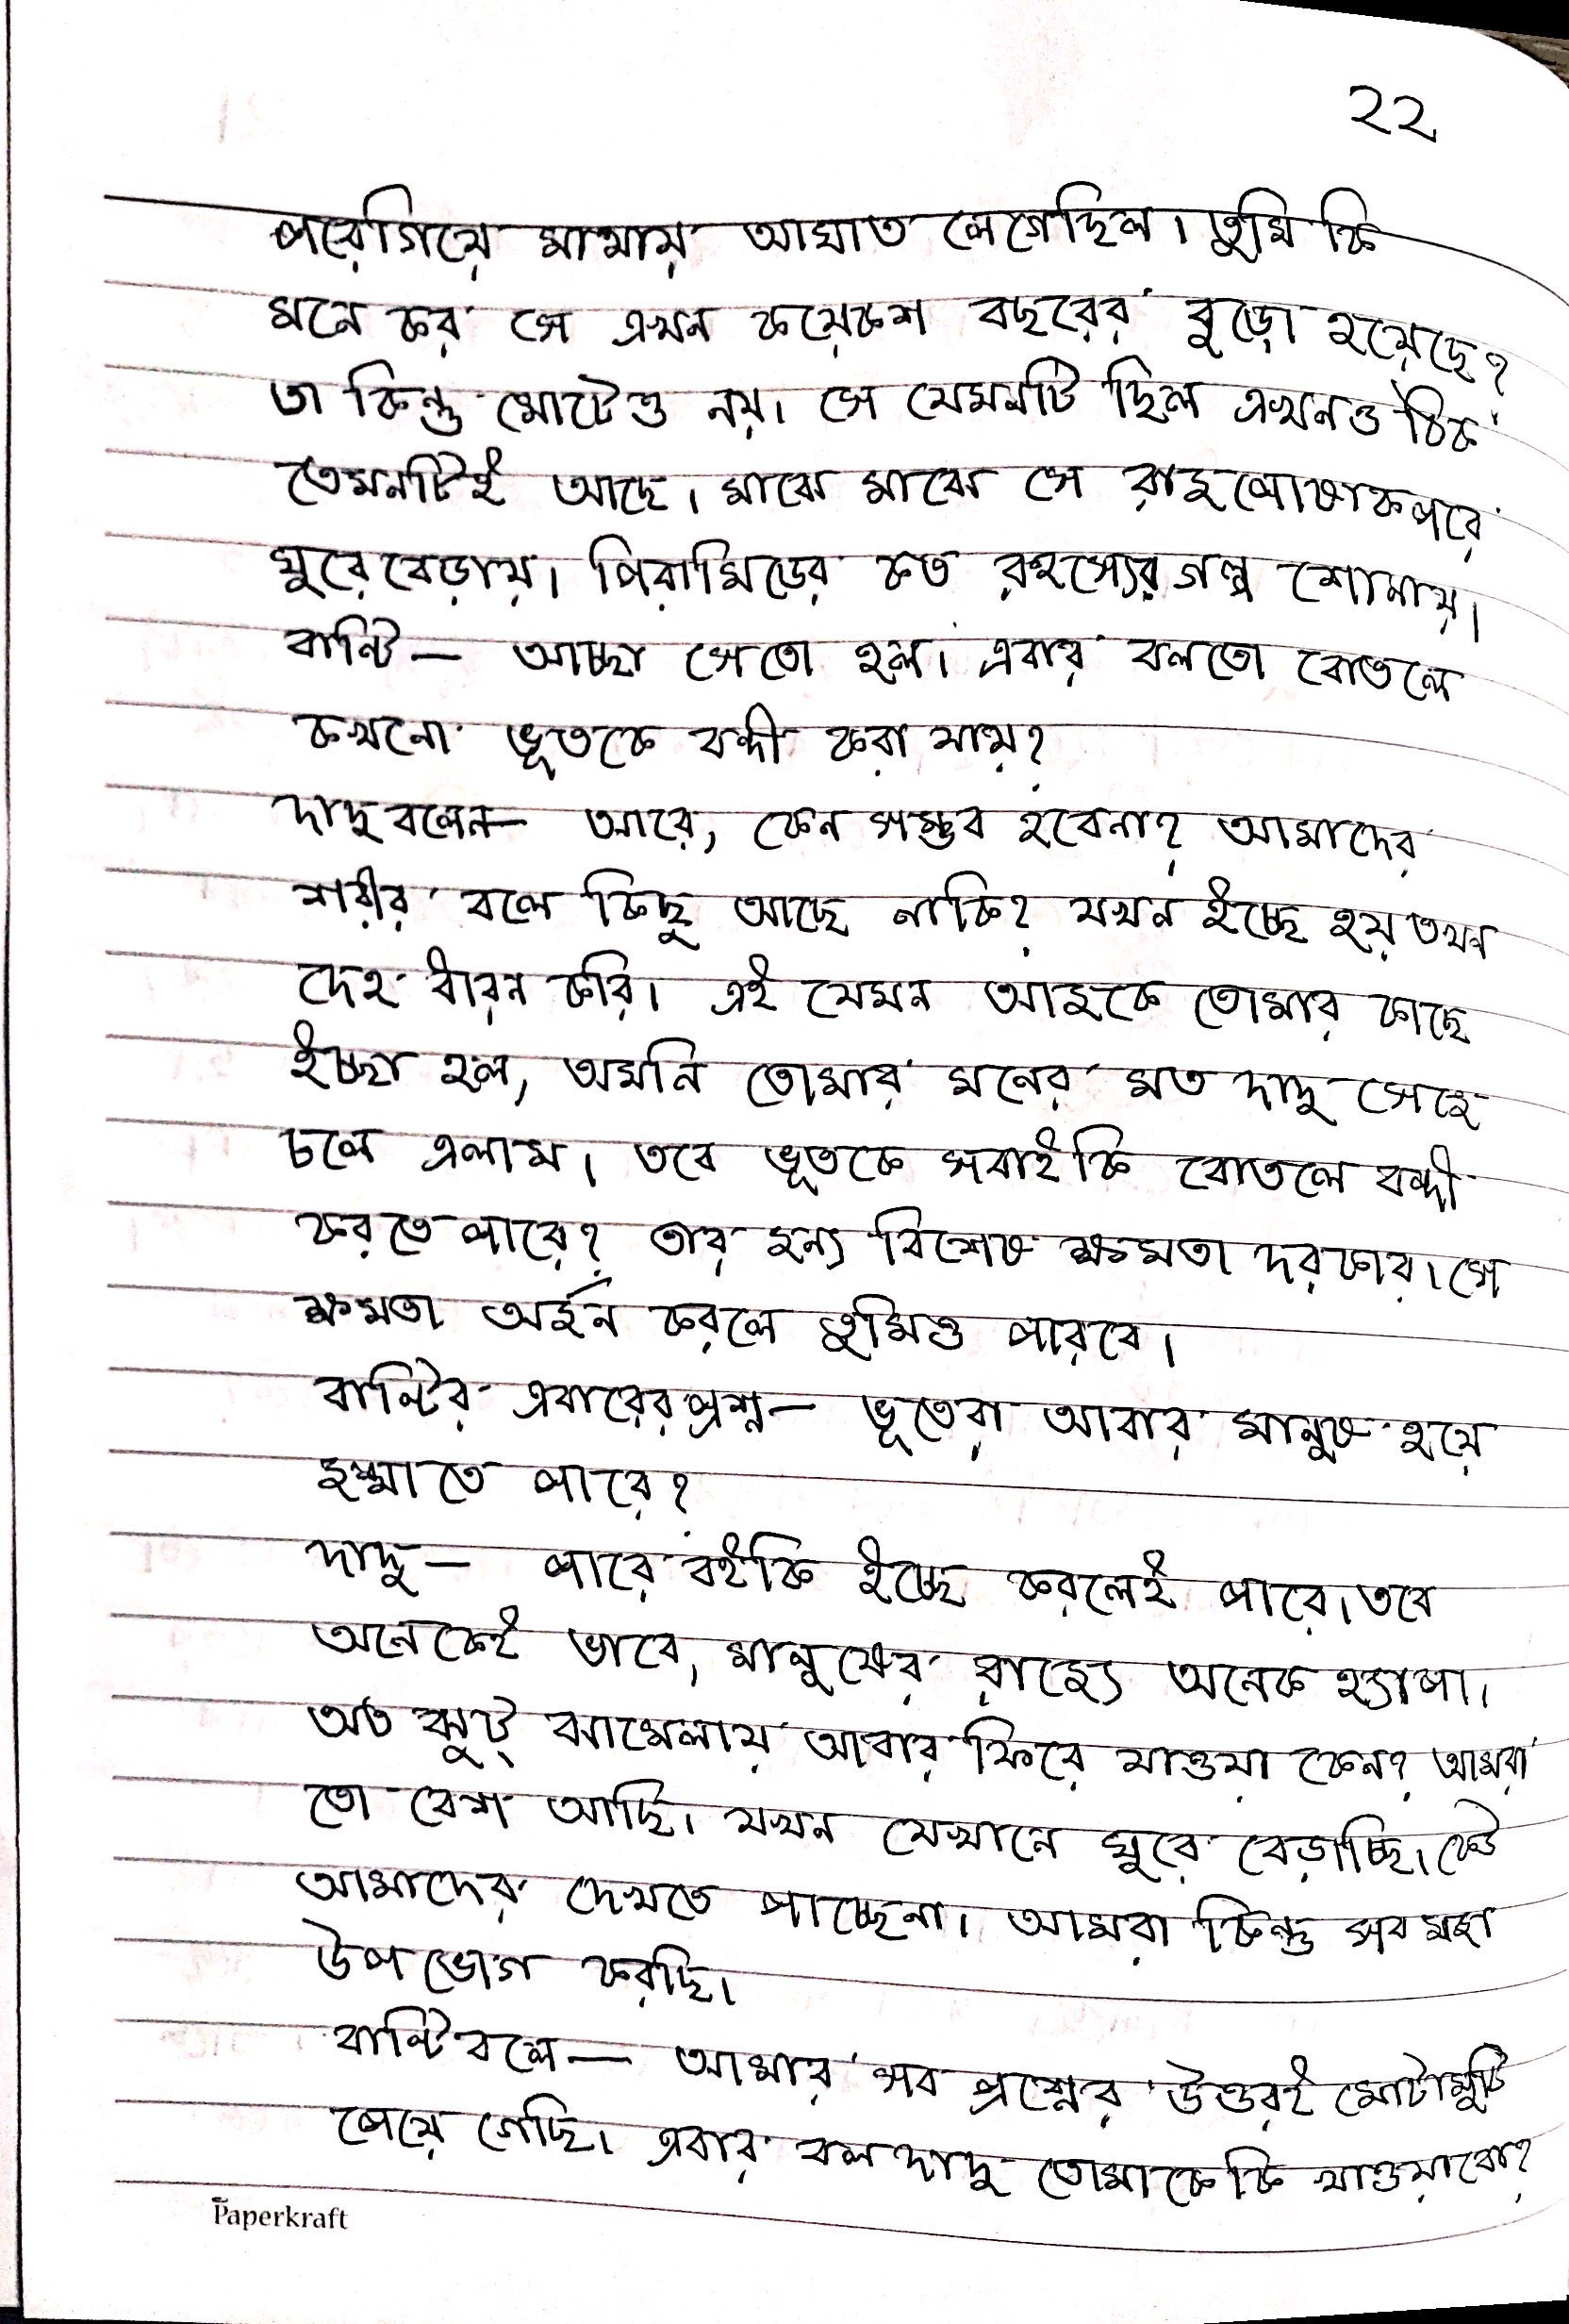 ২২
পরেগিয়ে মাথায় আঘাত লেগেছিল। তুমি কি
মনে কর সে এখন কয়েকশ বছরের বুড়ো হয়েছে?
তা কিন্তু মোটেও নয়। সে যেমনটি ছিল এখনও ঠিক
তেমনটিই আছে। মাঝে মাঝে সে রাজপোষাক পরে
ঘুরে বেড়ায়। পিরামিডের কত রহস্যের গল্প শোনায়।
বান্টি— আচ্ছা সেতো হল। এবার বলতো বোতলে
কখনো ভূতকে বন্দী করা যায়?
দাদু বলেন— আরে, কেন সম্ভব হবেনা? আমাদের
শরীর বলে কিছু আছে নাকি? যখন ইচ্ছে হয় তখন
দেহ ধারন করি। এই যেমন আজকে তোমার কাছে
ইচ্ছা হল, অমনি তোমার মনের মত দাদু সেজে
চলে এলাম। তবে ভূতকে সবাই কি বোতলে বন্দী
করতে পারে? তার জন্য বিশেষ ক্ষমতা দরকার। সে
ক্ষমতা অর্জন করলে তুমিও পারবে।
বান্টির এবারের প্রশ্ন— ভূতেরা আবার মানুষ হয়ে
জন্মাতে পারে?
দাদু— পারে বইকি ইচ্ছে করলেই পারে। তবে
অনেকেই ভাবে, মানুষের রাজ্যে অনেক হ্যাপা।
অত ঝুট্ ঝামেলায় আবার ফিরে যাওয়া কেন? আমরা
তো বেশ আছি। যখন যেখানে ঘুরে বেড়াচ্ছি। কেউ
আমাদের দেখতে পাচ্ছেনা। আমরা কিন্তু সব মজা
উপভোগ করছি।
বান্টি বলে— আমার সব প্রশ্নের উত্তরই মোটামুটি
পেয়ে গেছি। এবার বল দাদু তোমাকে কি খাওয়াবো?
Paperkraft